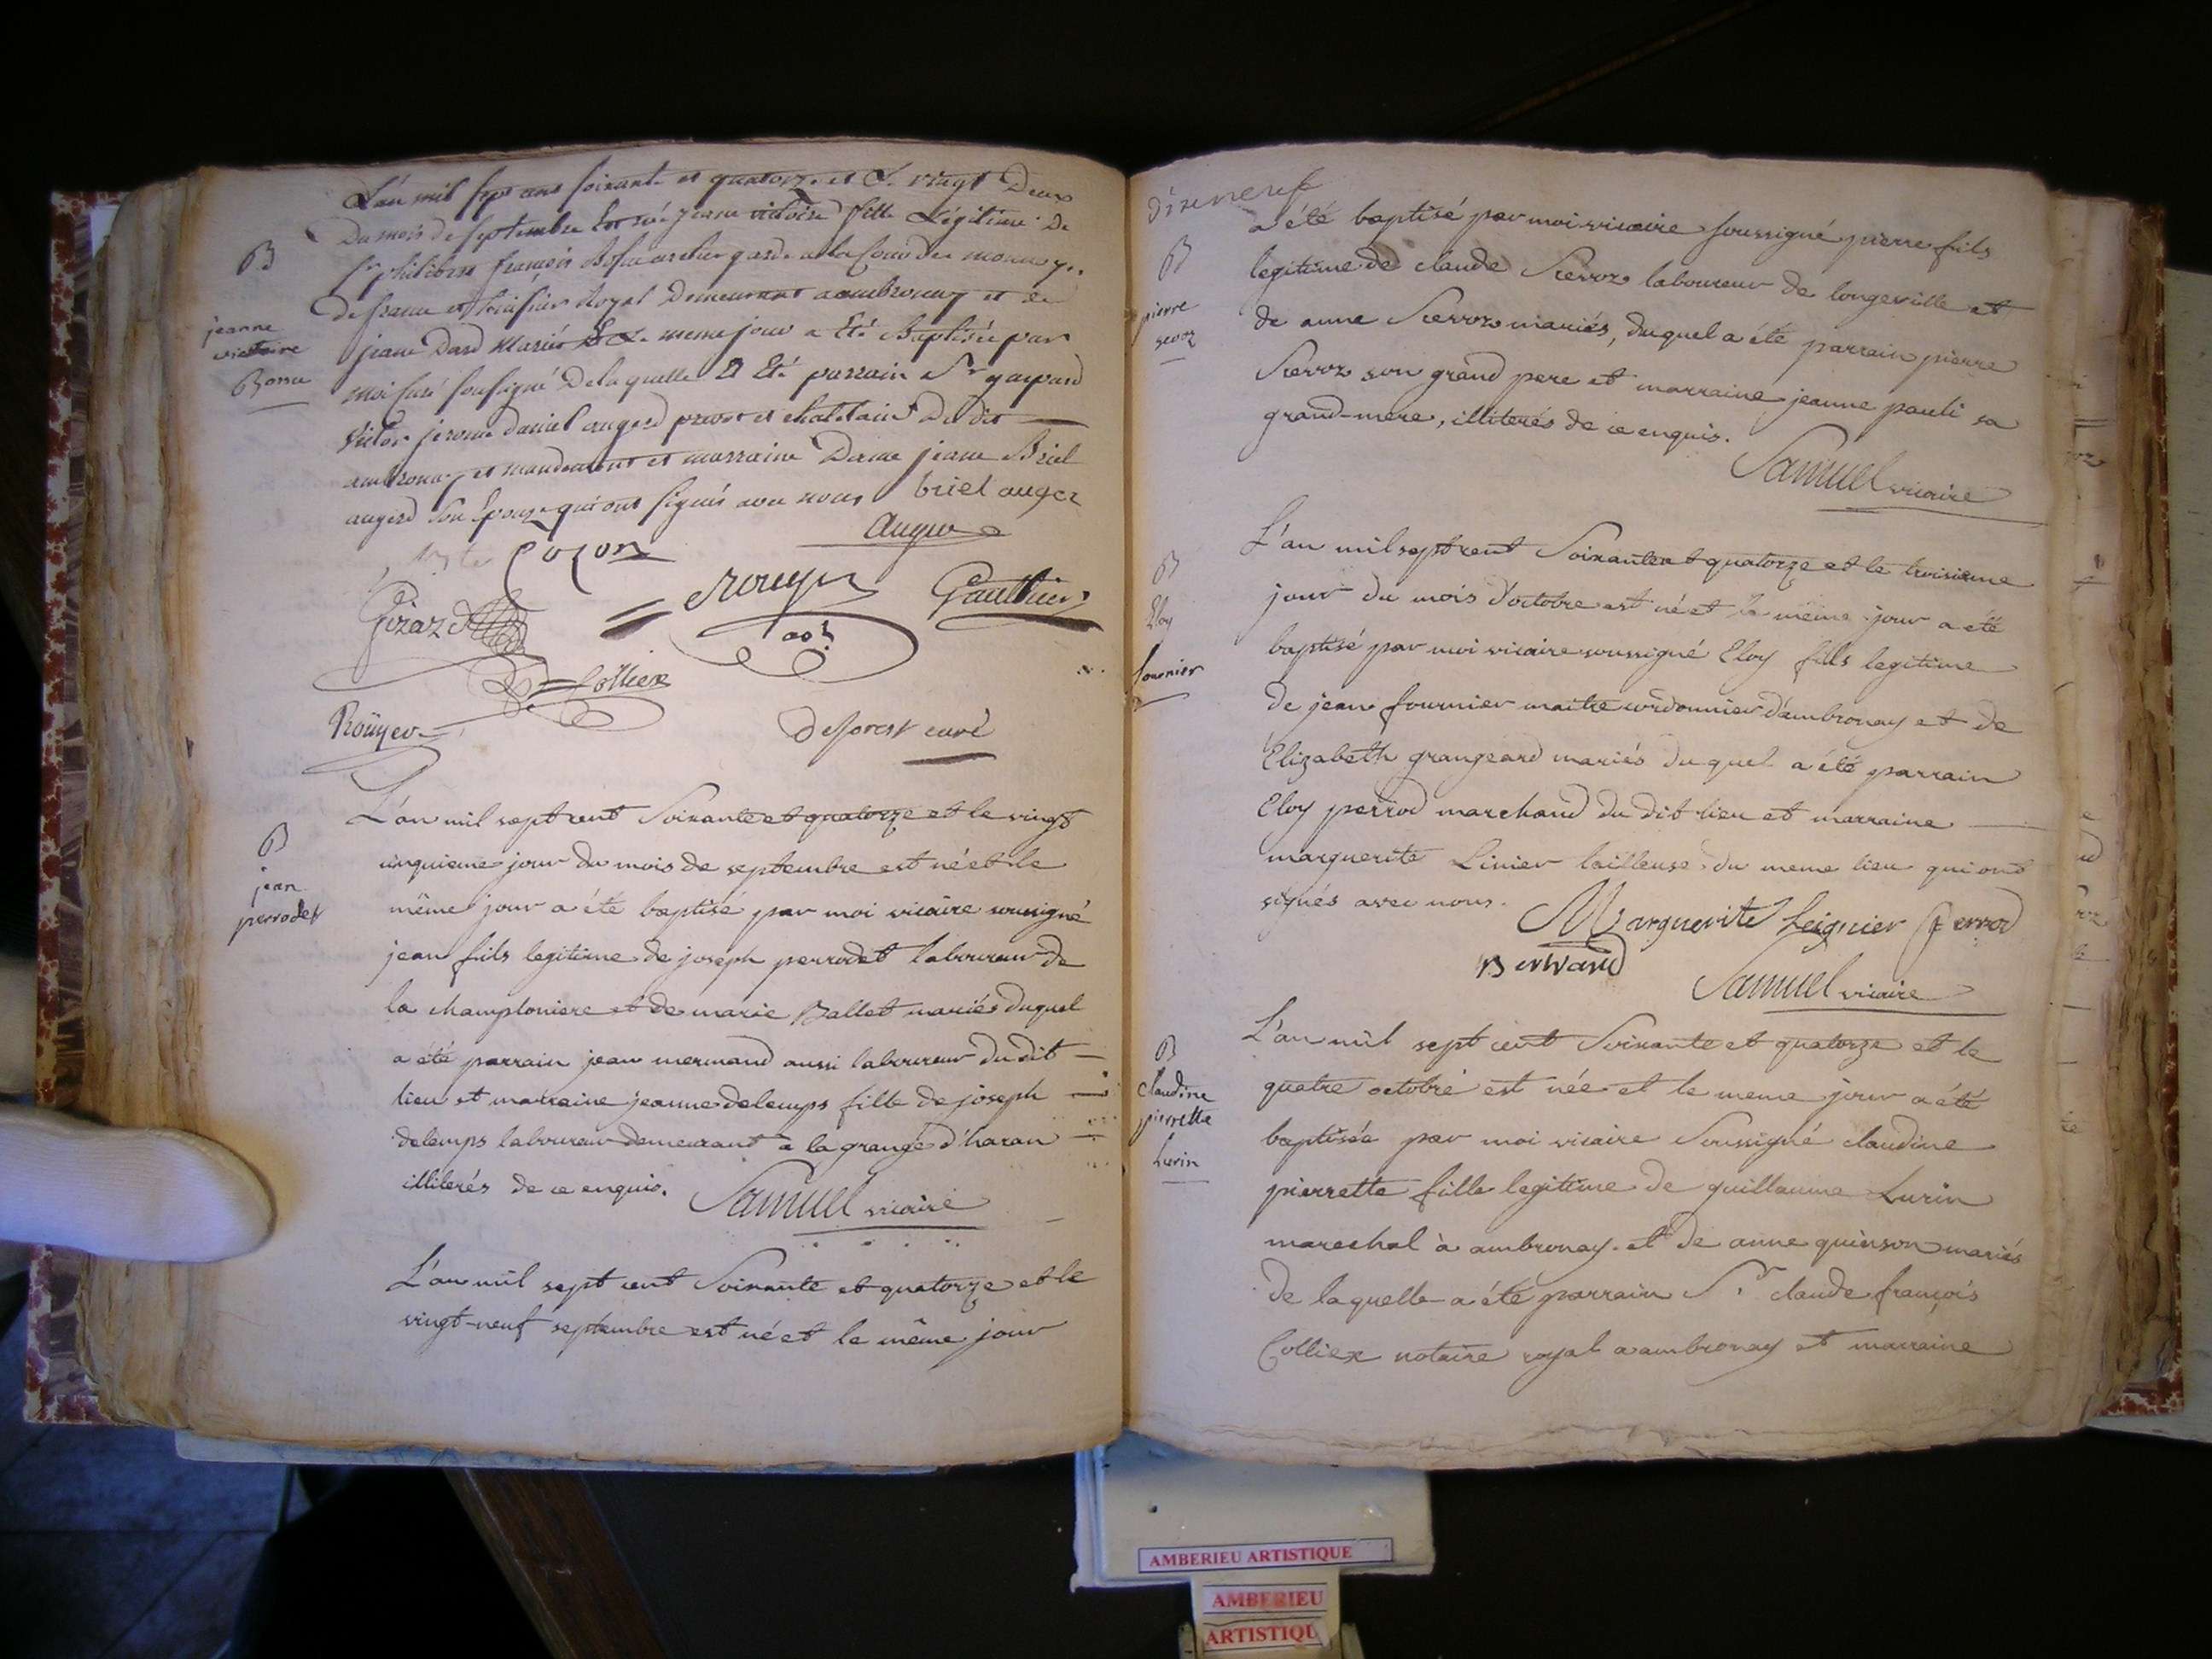 L'an mil sept cent soixante et quatorze et le vingt Deux
Du mois de septembre est née jeanne victoire fille Légitime De
Sr philibert françois Bossu archer garde a la Cour des monnoyes
De france et huissier Royal Demeurant a ambronay et de
jeane Dard Mariés & le meme jour a Eté Baptisée par
moi curé soussigné De laquelle A Eté parrain Sr gaspard
victor jerome daniel augerd prevot et chatelain Du dit
ambronay et mandement et marraine Dame jeane Briel
augerd son épouze qui ont signés avec nous briel auger
B
jeanne
victoire
Bossu
auger
Cozon
Girard
rouyer
Gaulthier
Colliex
Roüyer
deforest curé
B
jean
perrodet
L'an mil sept cent Soixante et quatorze et le vingt
cinquieme jour du mois de septembre est né et le
même jour a été baptisé par moi vicaire soussigné
jean fils legitime de joseph perrodet laboureur de
la championiere et de marie Ballet mariés duquel
a été parrain jean mermand aussi laboureur du dit
lieu et marraine jeanne delemps fille de joseph
delemps laboureur demeurant à la grange d'haran
illiterés de ce enquis. Samuel vicaire
L'an mil sept cent Soixante et quatorze et le
vingt-neuf septembre est né et le même jour
dixneuf
B
pierre
sevoz
a été baptisé par moi vicaire soussigné pierre fils
legitime de claude Scevoz laboureur de longeville et
de anne Scevoz mariés, duquel a été parrain pierre
Scevoz son grand pere et marraine jeanne pauli sa
grand-mere, illiterés de ce enquis.
Samuel vicaire
B
Eloy
fournier
L'an mil sept cent Soixante et quatorze et le troisieme
jour du mois d'octobre est né et le même jour a été
baptisé par moi vicaire soussigné Eloy fils legitime
de jean fournier maitre cordonnier d'ambronay et de
Elizabeth grangeard mariés duquel a été parrain
Eloy perrod marchand du dit lieu et marraine
marguerite Linier tailleuse du meme lieu qui ont
signés avec nous.
Marguerite Leignier Perrod
Bertrand
Samuel vicaire
B
claudine
pierrette
Lurin
L'an mil sept cent Soixante et quatorze et le
quatre octobre est née et le meme jour a été
baptisée par moi vicaire Soussigné claudine
pierrette fille legitime de guillaume Lurin
marechal à ambronay et de anne quinson mariés
de laquelle a été parrain Sr claude françois
Colliex notaire royal a ambronay et marraine
AMBERIEU ARTISTIQUE
AMBERIEU
ARTISTIQU